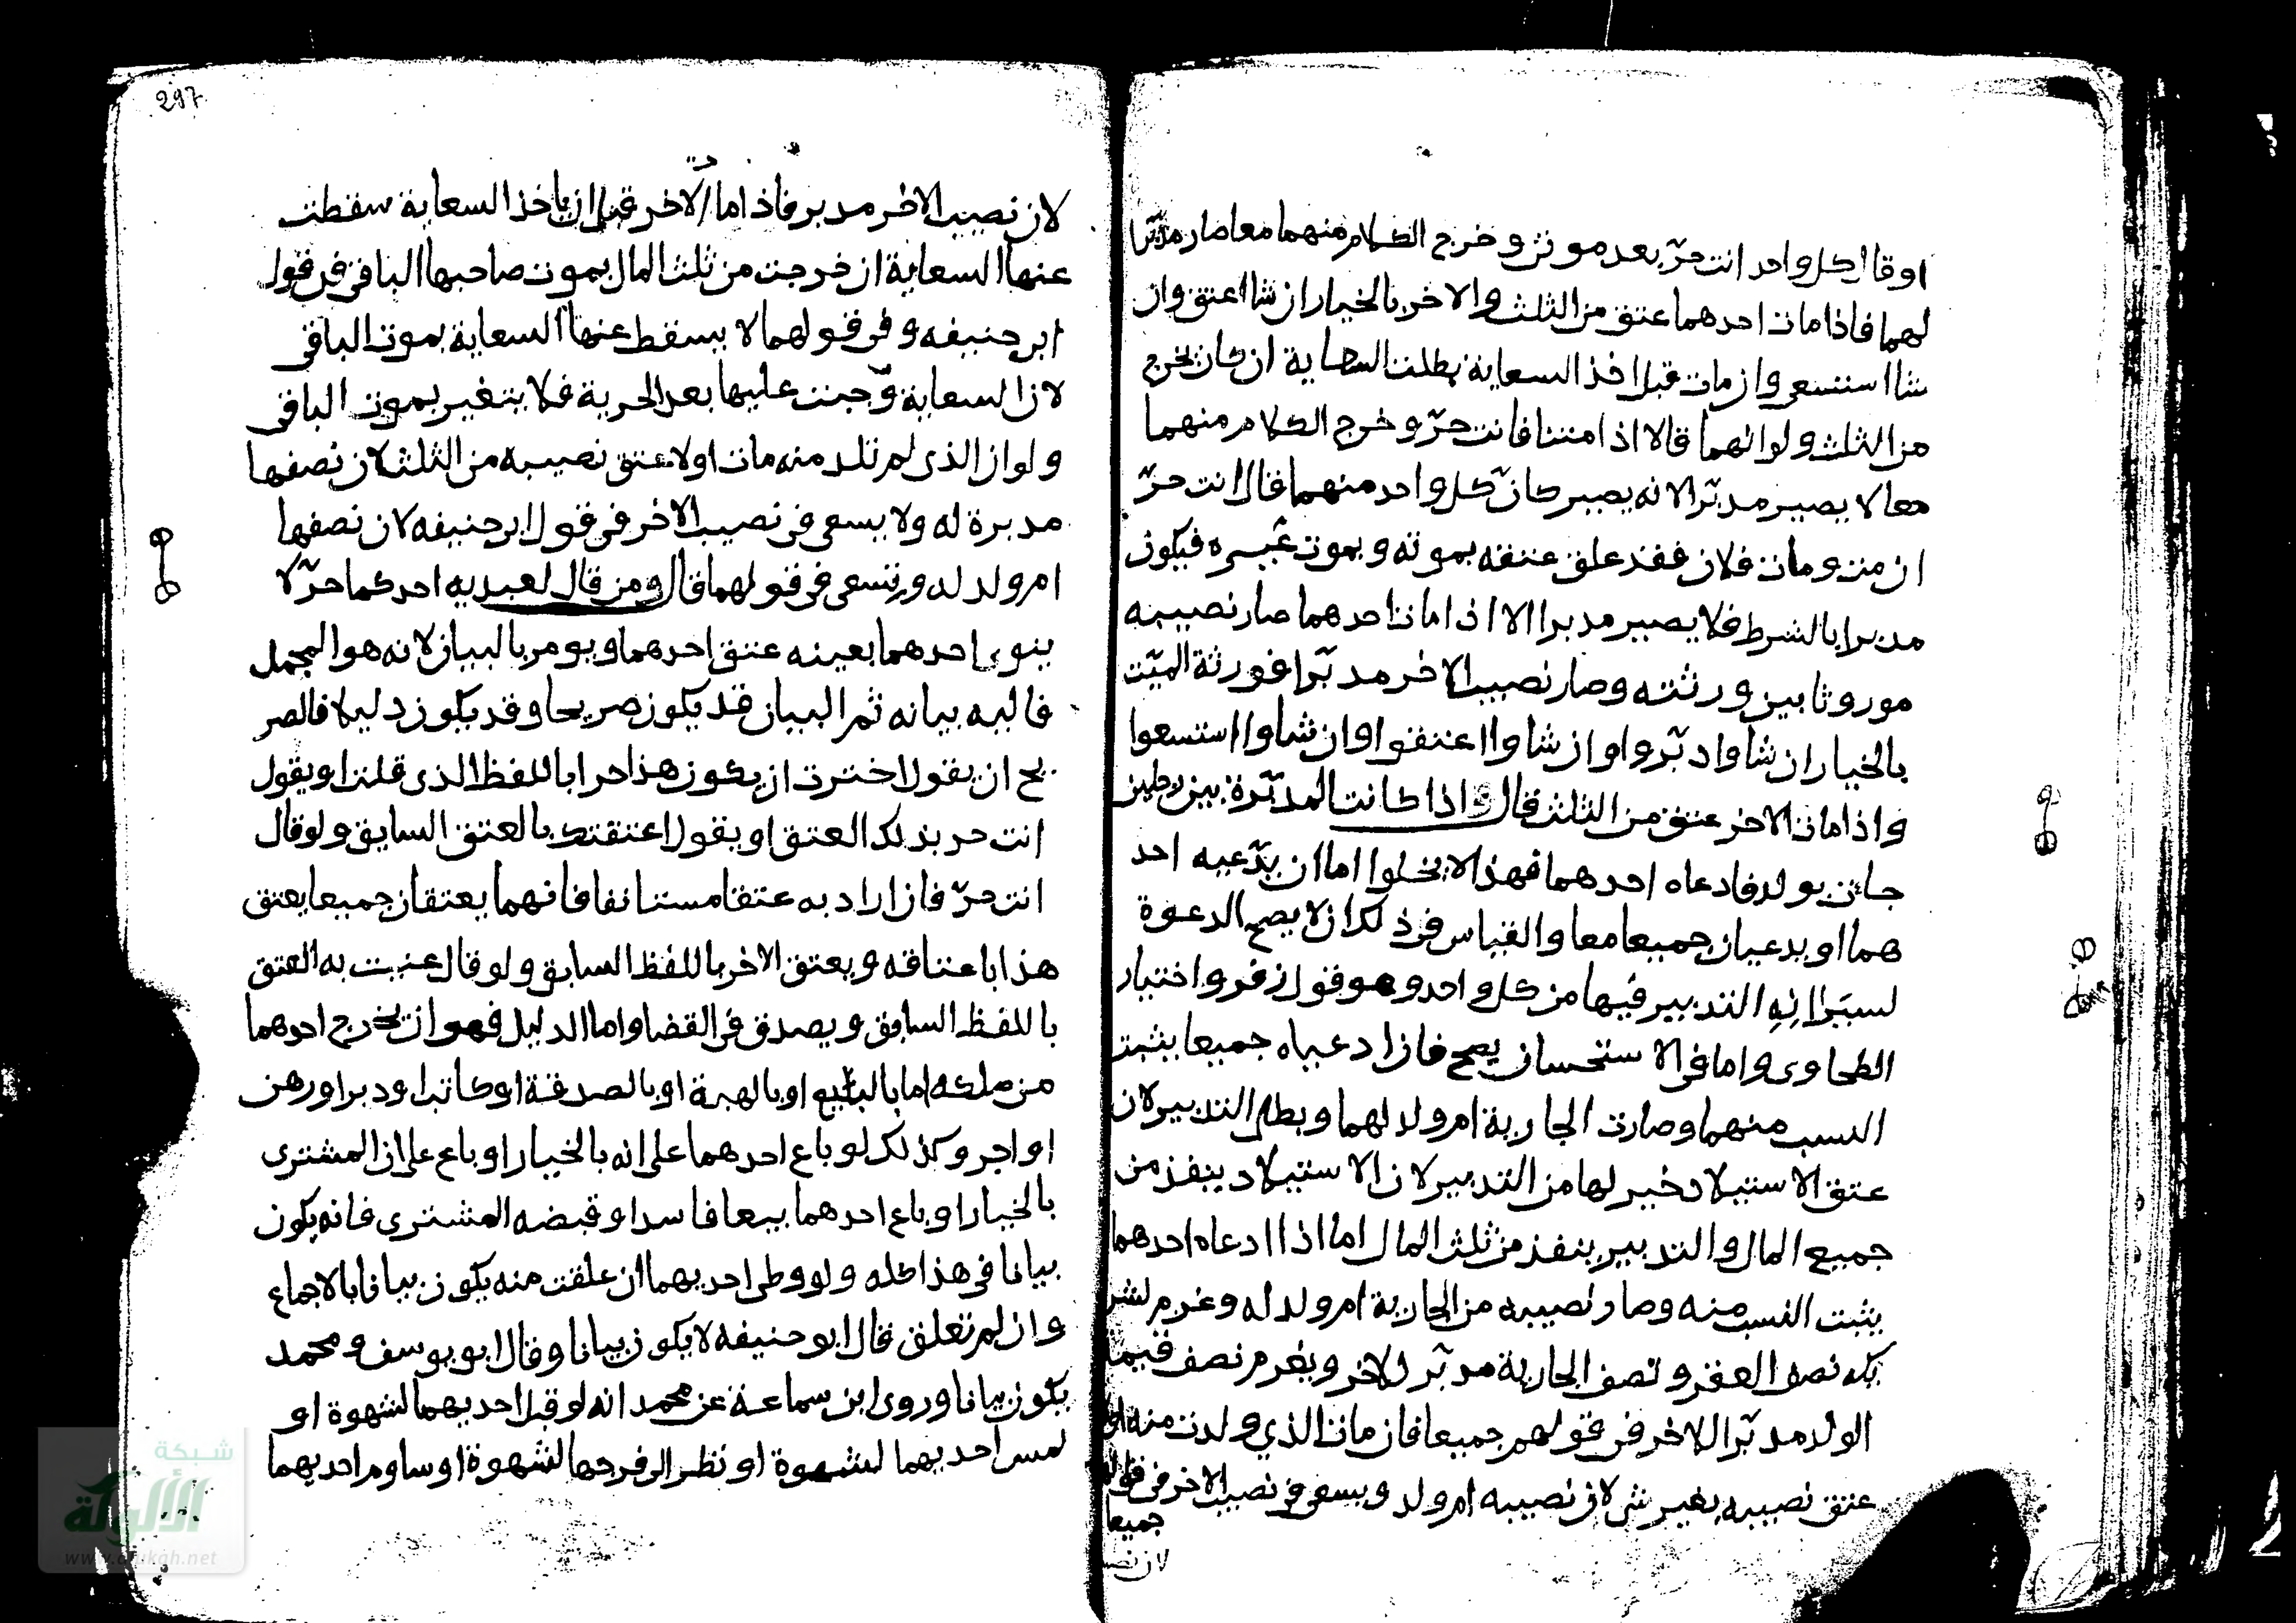 او قال كل واحد انت حرّ بعد موتى وخرج الكلام منهما معا صار مدبّرا
لهما فاذا مات احدهما عتق من الثلث والاخر بالخيار ان شا اعتق وان
شا استسعى وان مات قبل اخذ السعاية بطلت السعاية ان كان يخرج
من الثلث ولو انهما قالا اذا متنا فانت حرّ وخرج الكلام منهما
معا لا يصير مدبّرا لانه يصير كانّ كل واحد منهما قال انت حرّ
ان مت ومات فلان فقد علق عتقه بموته وبموت غيره فيكون
مدبرا بالشرط فلا يصير مدبرا الا اذا مات احدهما صار نصيبه
موروثا بين ورثته وصار نصيب الاخر مدبّرا فورثة الميّت
بالخيار ان شاوا دبّروا وان شاوا اعتقوا وان شاوا استسعوا
واذا مات الاخر عتق من الثلث قال واذا كانت المدبّرة بين رجلين
جات بولد فادعاه احدهما فهذا لا يخلوا اما ان يدّعيه احد
هما او يدعيان جميعا معا والقياس فى ذلك ان لا يصح الدعوة
التدبير فيها من كل واحد وهو قول زفر واختيار
الطحاوى واما فى الاستحسان يصح فان ادعياه جميعا يثبت
النسب منهما وصارت الجارية ام ولد لهما وبطل التدبير لان
عتق الاستيلاد خير لها من التدبير لان الاستيلاد ينفذ من
جميع المال والتدبير ينفذ من ثلث المال اما اذا ادعاه احدهما
يثبت النسب منه وصار نصيبه من الجارية ام ولد له وغرم لشر
يكه نصف العقر ونصف الجارية مدبّر للاخر ويغرم نصف قيمة
الولد مدبّرا للاخر فى قولهم جميعا فان مات الذي ولدت منه اولا
عتق نصيبه بغير شى لان نصيبه ام ولد ويسعى فى نصيب الاخر فى قولهم
جميعا
لان نصـ
297
لان نصيب الاخر مدبر فاذا مات الاخر قبل ان ياخذ السعاية سقطت
عنها السعاية ان خرجت من ثلث المال بموت صاحبها الباقى فى قول
ابى حنيفه وفى قولهما لا يسقط عنها السعاية بموت الباقى
لان السعاية وجبت عليها بعد الحرية فلا يتغير بموت الباقى
ولو ان الذى لم تلد منه مات اولا عتق نصيبه من الثلث لان نصفها
مدبرة له ولا يسعى فى نصيب الاخر فى قول ابى حنيفه لان نصفها
ام ولد له وتسعى فى قولهما قال ومن قال لعبديه احدكما حرّ لا
ينوى احدهما بعينه عتق احدهما ويومر بالبيان لانه هو المجمل
فاليه بيانه ثم البيان قد يكون صريحا وقد يكون دليلا فالصر
يح ان يقول اخترت ان يكون هذا حرا باللفظ الذى قلت او يقول
انت حر بذلك العتق او يقول اعتقتك بالعتق السابق ولو قال
انت حرّ فان اراد به عتقا مستانفا فانهما يعتقان جميعا يعتق
هذا باعتاقه ويعتق الاخر باللفظ السابق ولو قال عنيت به العتق
باللفظ السابق ويصدق فى القضا واما الدليل فهو ان يخرج احدهما
من ملكه اما بالبيع او بالهبة او بالصدقة او كاتب او دبر او رهن
او اجر وكذلك لو باع احدهما على انه بالخيار او باع على ان المشترى
بالخيار او باع احدهما بيعا فاسدا وقبضه المشترى فانه يكون
بيانا فى هذا كله ولو وطى احديهما ان علقت منه يكون بيانا بالاجماع
وان لم تعلق قال ابو حنيفه لا يكون بيانا وقال ابو يوسف ومحمد
يكون بيانا وروى ابن سماعة عن محمد انه لو قبل احديهما لشهوة او
لمس احديهما لشهوة او نظر الى فرجها لشهوة او ساوم احديهما
شبكة
الألوكة
www.alukah.net